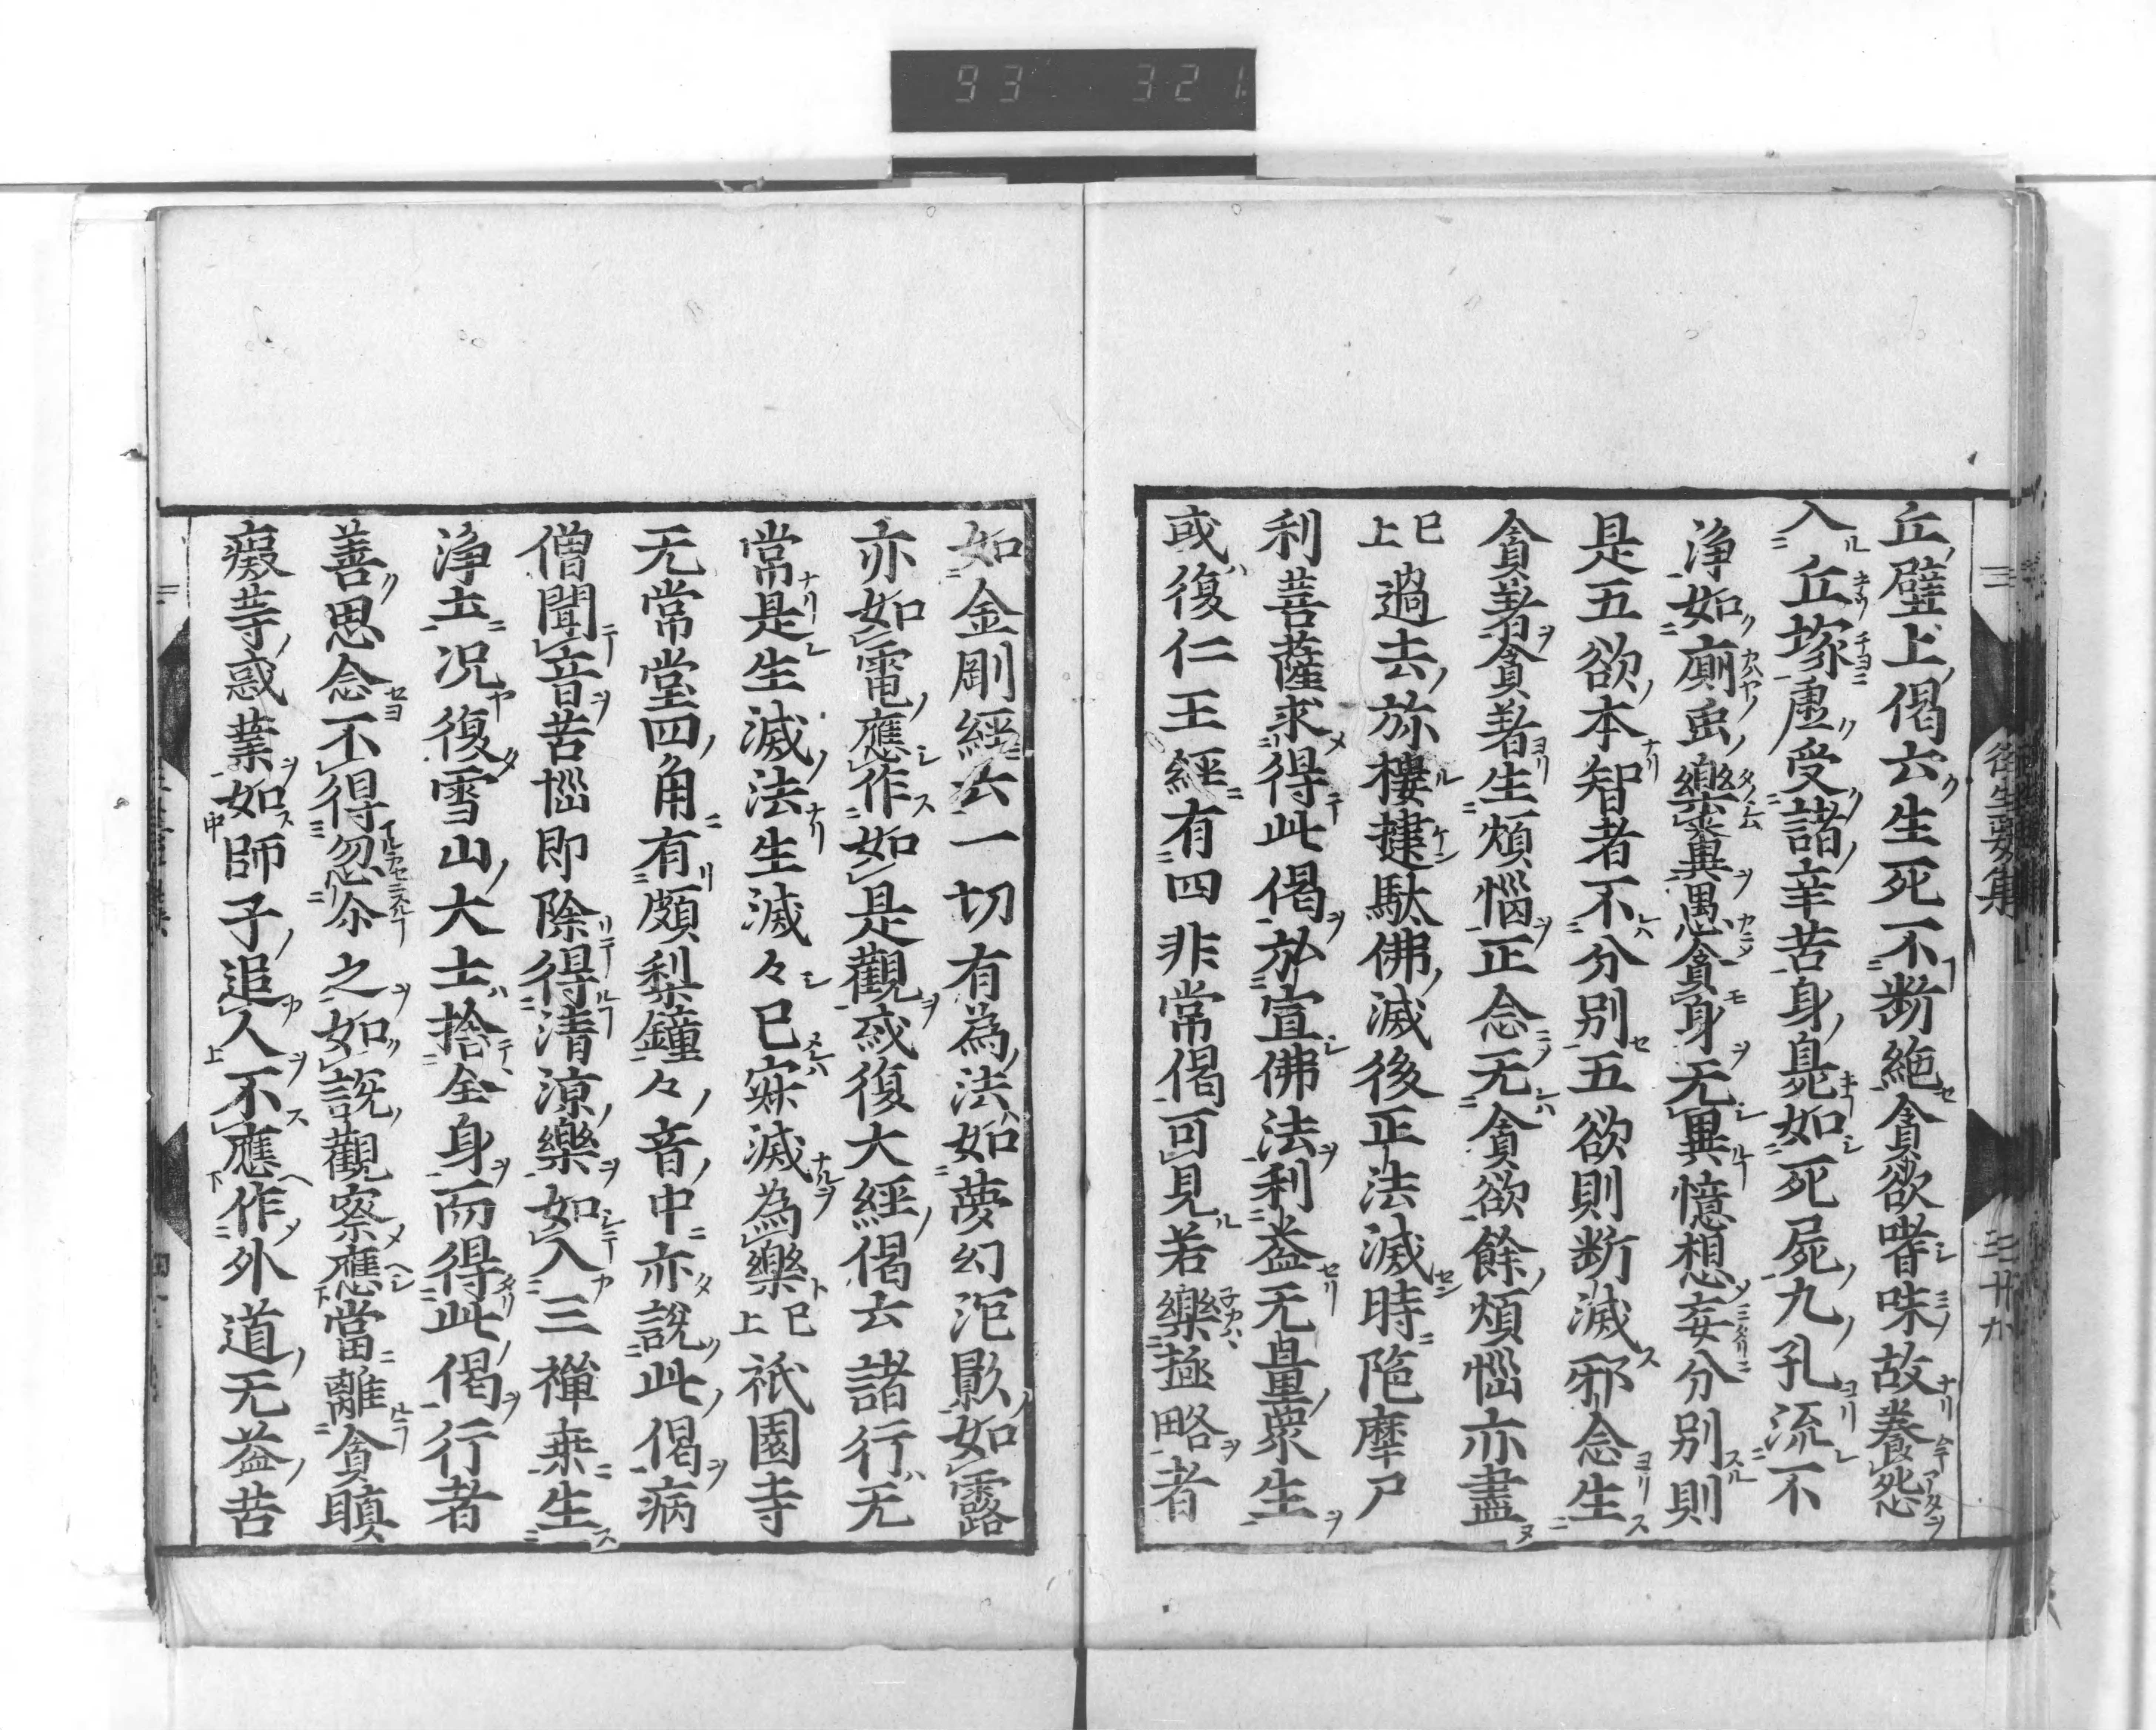 93 321
丘壁上偈云生死不断絶貪欲嗜味故養怨
入丘塚虚受諸辛苦身臭如死屍九孔流不
浄如廁虫樂糞愚貪身无異憶想妄分別則
是五欲本智者不分別五欲則断滅邪念生
貪著貪著生煩惱正念无貪欲餘煩惱亦盡
已上過去弥樓揵駄佛滅後正法滅時陁摩尸
利菩薩求得此偈弘宣佛法利益无量衆生
或復仁王經有四非常偈可見若樂極略者
如金剛經云一切有為法如夢幻泡影如露
亦如電應作如是觀或復大經偈云諸行无
常是生滅法生滅々已寂滅為樂已上祇園寺
无常堂四角有頗梨鐘々音中亦說此偈病
僧聞音苦惱即除得清凉樂如入三禅垂生
浄土况復雪山大士捨全身而得此偈行者
善思念不得忽尓之如說觀察應當離貪瞋
癡等惑業如師子追人不應作外道无益苦